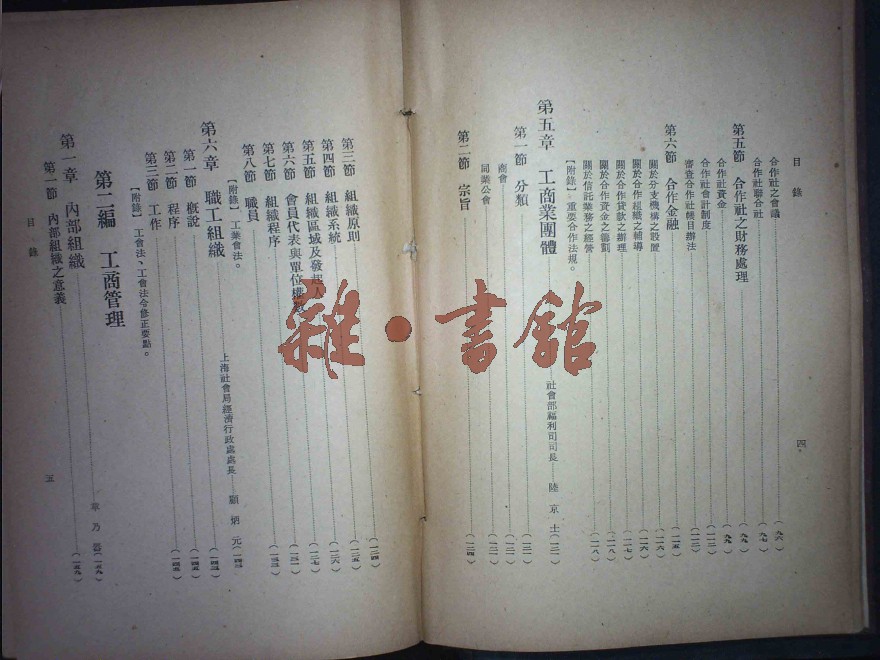 目錄
四
合作社之會議……(九六)
合作社聯合社……(九七)
第五節 合作社之財務處理……(九九)
合作社資金……(九九)
合作社會計制度
審查合作社帳目辦法
第六節 合作金融……(一一五)
關於分支機構之設置
關於合作組織之輔導……(一一六)
關於合作貸款之辦理……(一一七)
關於合作資金之籌劃……(一一八)
關於信託業務之經營……(一一八)
【附錄】重要合作法規。
第五章 工商業團體 社會部福利司司長 陸京士
第一節 分類
商會
同業公會
第二節 宗旨……(一二四)
第三節 組織原則……(一二四)
第四節 組織系統……(一二五)
第五節 組織區域及發起人……(一二六)
第六節 會員代表與單位權數……(一二七)
第七節 組織程序
第八節 職員
【附錄】工業會法。
第六章 職工組織 上海社會局經濟行政處處長 顧炳元
第一節 概說
第二節 程序……(一四五)
第三節 工作
【附錄】工會法、工會法令修正要點。
第二編 工商管理
第一章 內部組織 章乃器
第一節 內部組織之意義……(一五九)
目錄
五
雜·書館